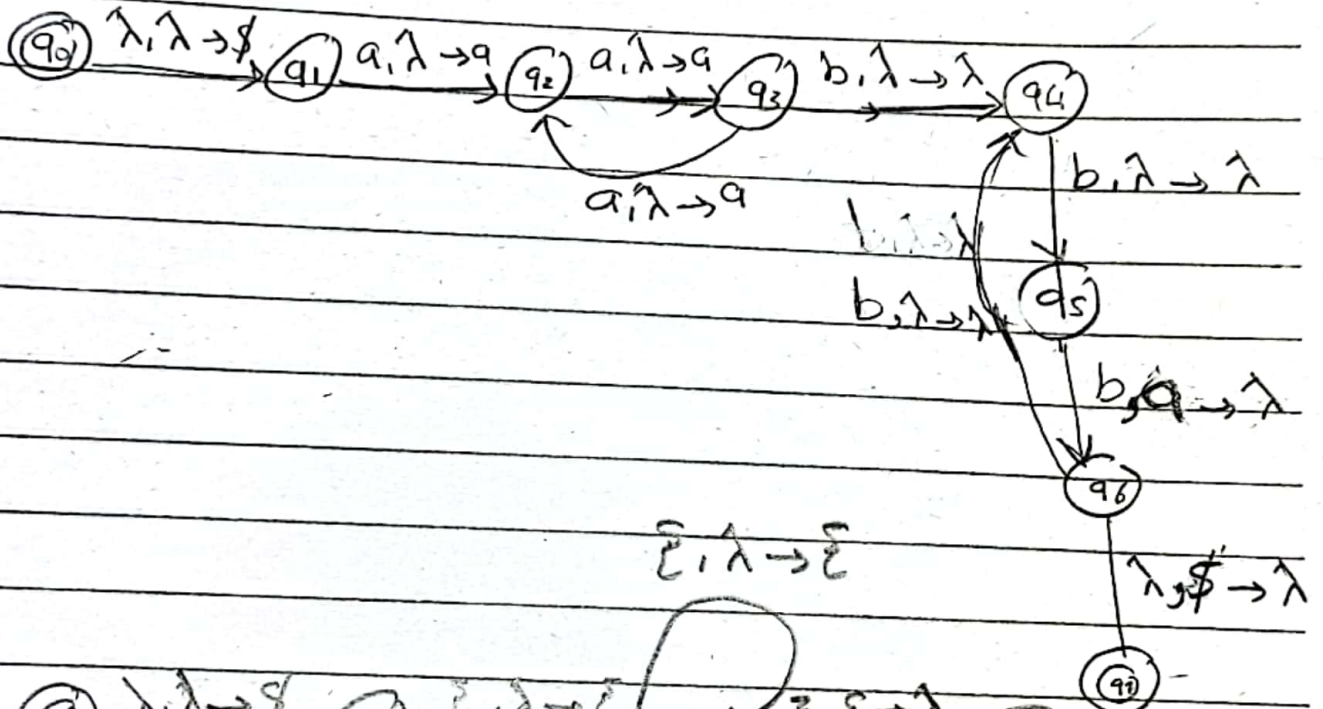 q0 λ,λ→$ q1 a,λ→a q2 a,λ→a q3 b,λ→λ q4
a,λ→a
b,λ→λ
b,λ→λ
q5
b,λ→λ
b,a→λ
q6
{,λ→{
λ,$→λ
λ,λ→$